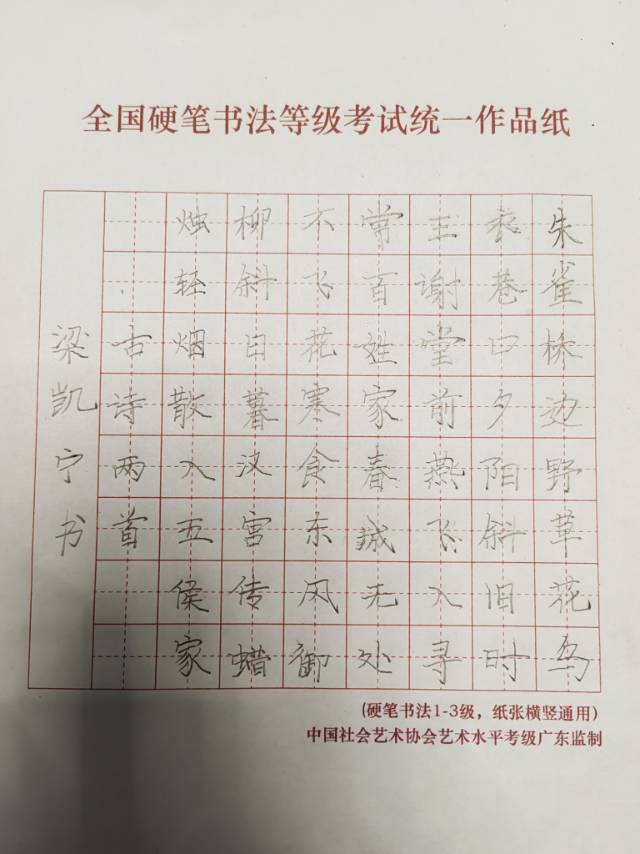 全国硬笔书法等级考试统一作品纸
朱雀桥边野草花乌
衣巷口夕阳斜旧时
王谢堂前燕飞入寻
常百姓家春城无处
不飞花寒食东风御
柳斜日暮汉宫传蜡
烛轻烟散入五侯家
古诗两首
梁凯宁书
(硬笔书法1-3级，纸张横竖通用)
中国社会艺术协会艺术水平考级广东监制